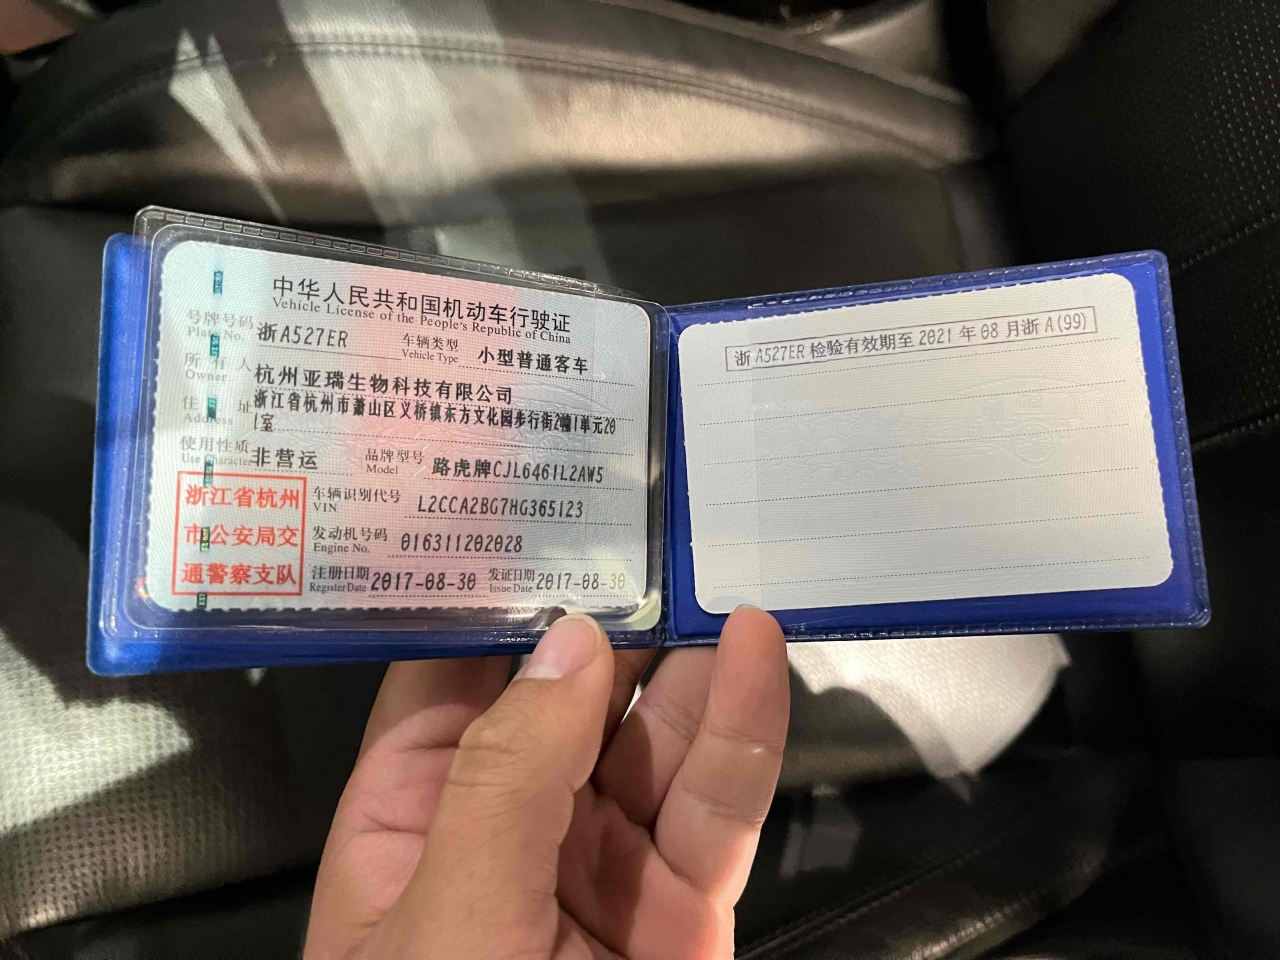 中华人民共和国机动车行驶证
Vehicle License of the People's Republic of China
号牌号码 浙A527ER 车辆类型 小型普通客车
Plate No. Vehicle Type
所有人 杭州亚瑞生物科技有限公司
Owner
住址 浙江省杭州市萧山区义桥镇东方文化园步行街2幢1单元20
Address 1室
使用性质 非营运 品牌型号 路虎牌CJL6461L2AW5
Use Character Model
浙江省杭州
市公安局交
通警察支队
车辆识别代号 L2CCA2BG7HG365123
VIN
发动机号码 016311202028
Engine No.
注册日期 2017-08-30 发证日期 2017-08-30
Register Date Issue Date
浙A527ER 检验有效期至 2021 年 08 月浙 A(99)